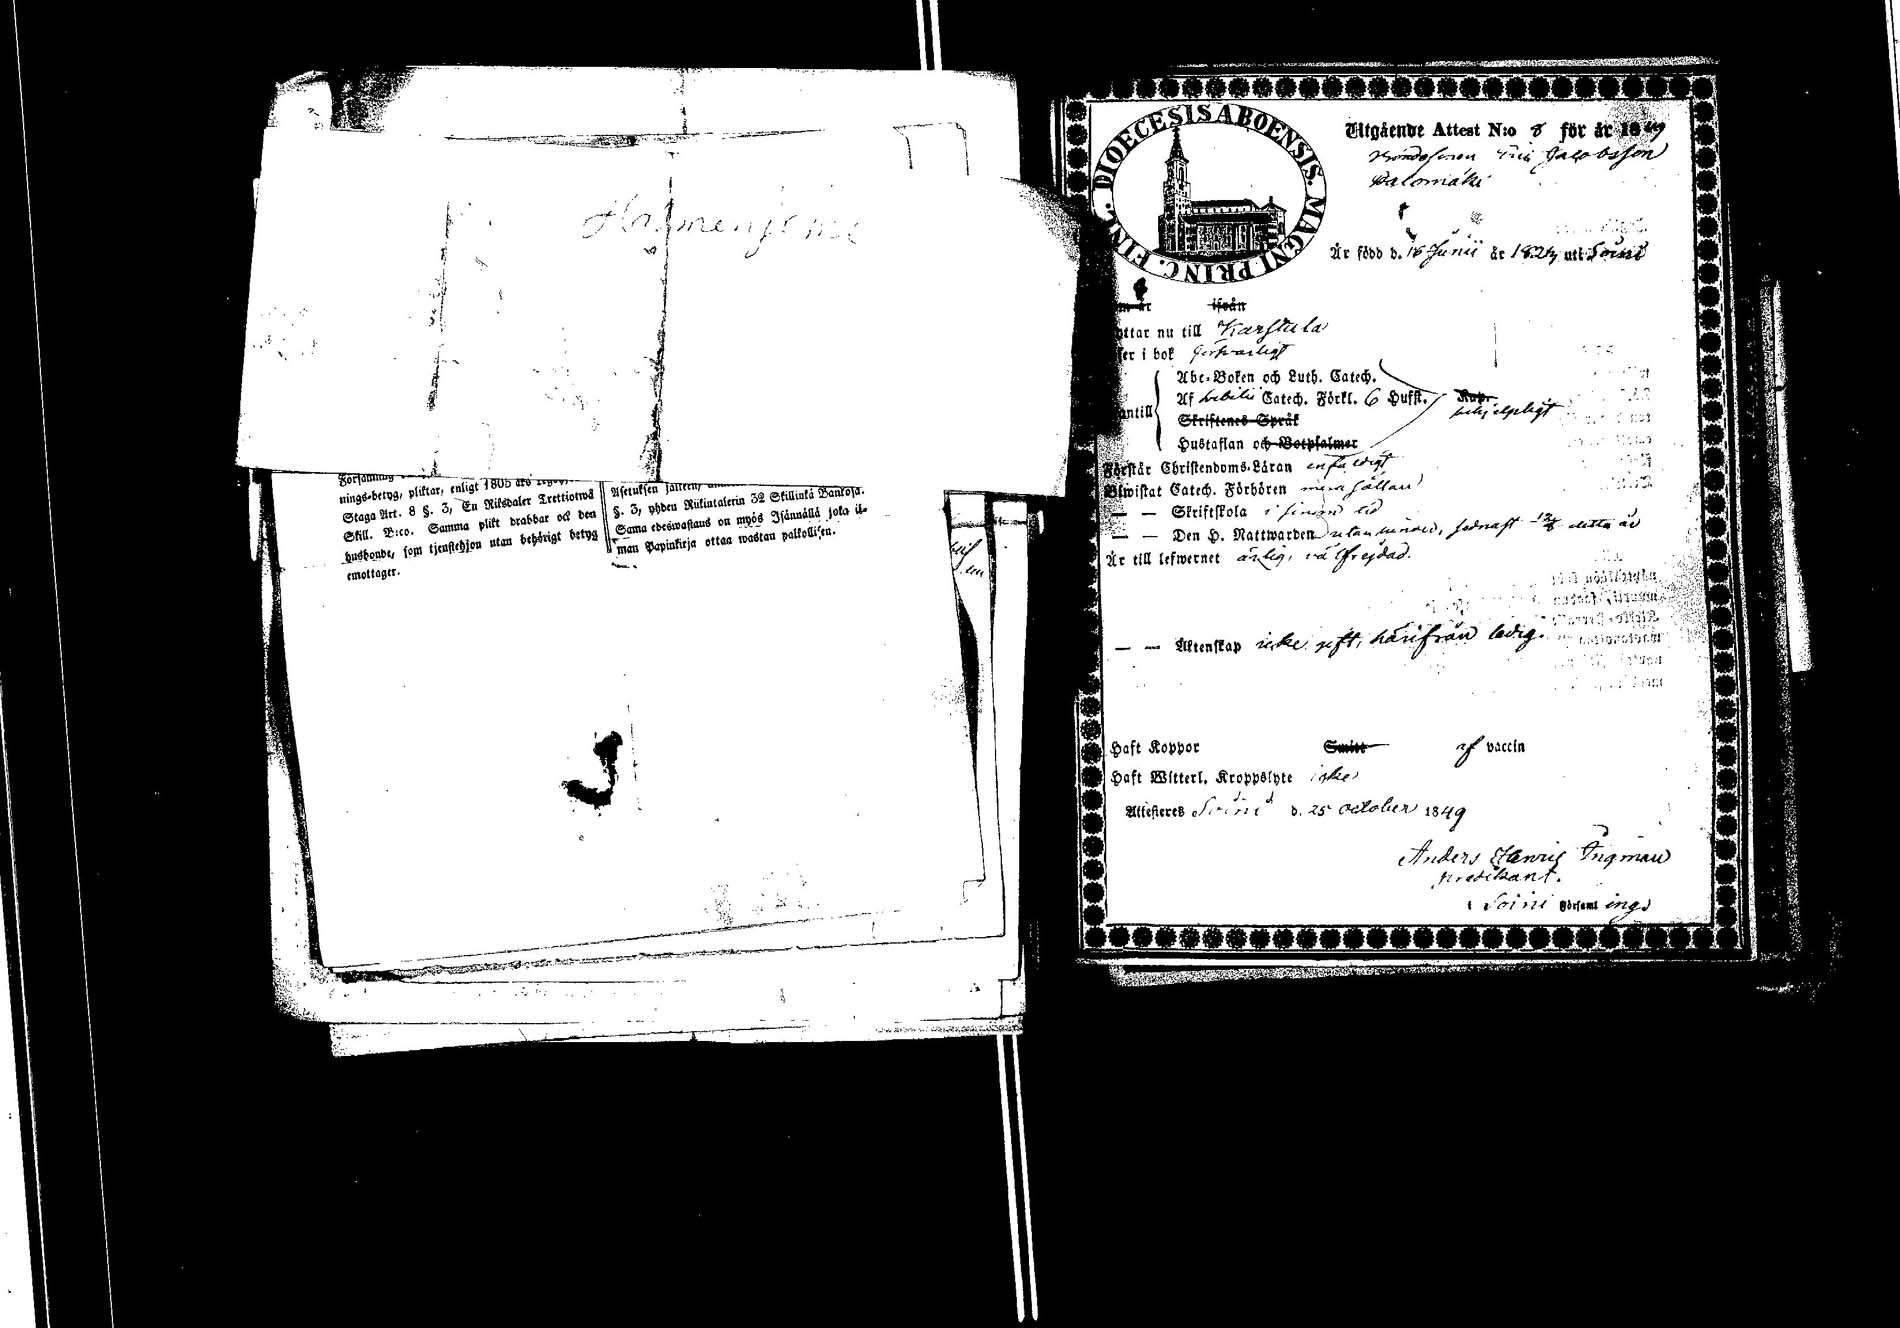 Halmenjeme
nings-betyg, pliktar, enligt 1805 års
Staga Art. 8 §. 3, En Riksdaler Trettiotwå
Skill. B:co. Samma plikt drabbar ock den
husbonde, som tjenstehjon utan behörigt betyg
emottager.
Asetuksen jälkeen,
§. 3, yhden Riikintalerin 32 Skillinkiä Bankosa.
Sama edeswastaus on myös Isännällä joka il-
man Papinkirja ottaa wastan palkollisen.
DIOECESIS ABOENSIS. MAGNI PRINC. FINL.
Utgående Attest N:o 8 för år 1849
Bondesonen Eric Jacobsson
Salomäki
Är född d. 16 Junii år 1824 uti Soini
ifrån
nu till Karstula
i bok försvarligt
Abc-Boken och Luth. Catech.
Af Catech. Förkl. 6 Hufst.
behjelpligt
Skriftenes Språk
Hustaflan och Botpsalmer
Förstår Christendoms-Läran enfaldigt
Biwistat Catech. Förhören mera sällan
— — Skriftskola i sinom tid
— — Den H. Nattwarden detta år
Är till lefwernet ärlig, välfrejdad.
— — Äktenskap icke gift, härifrån ledig.
Haft Koppor Smitt af vaccin
Haft Witterl. Kroppslyte icke
Attesteres Soini d. 25 October 1849
Anders Henric Ingman
predikant.
i Soini Församl ings